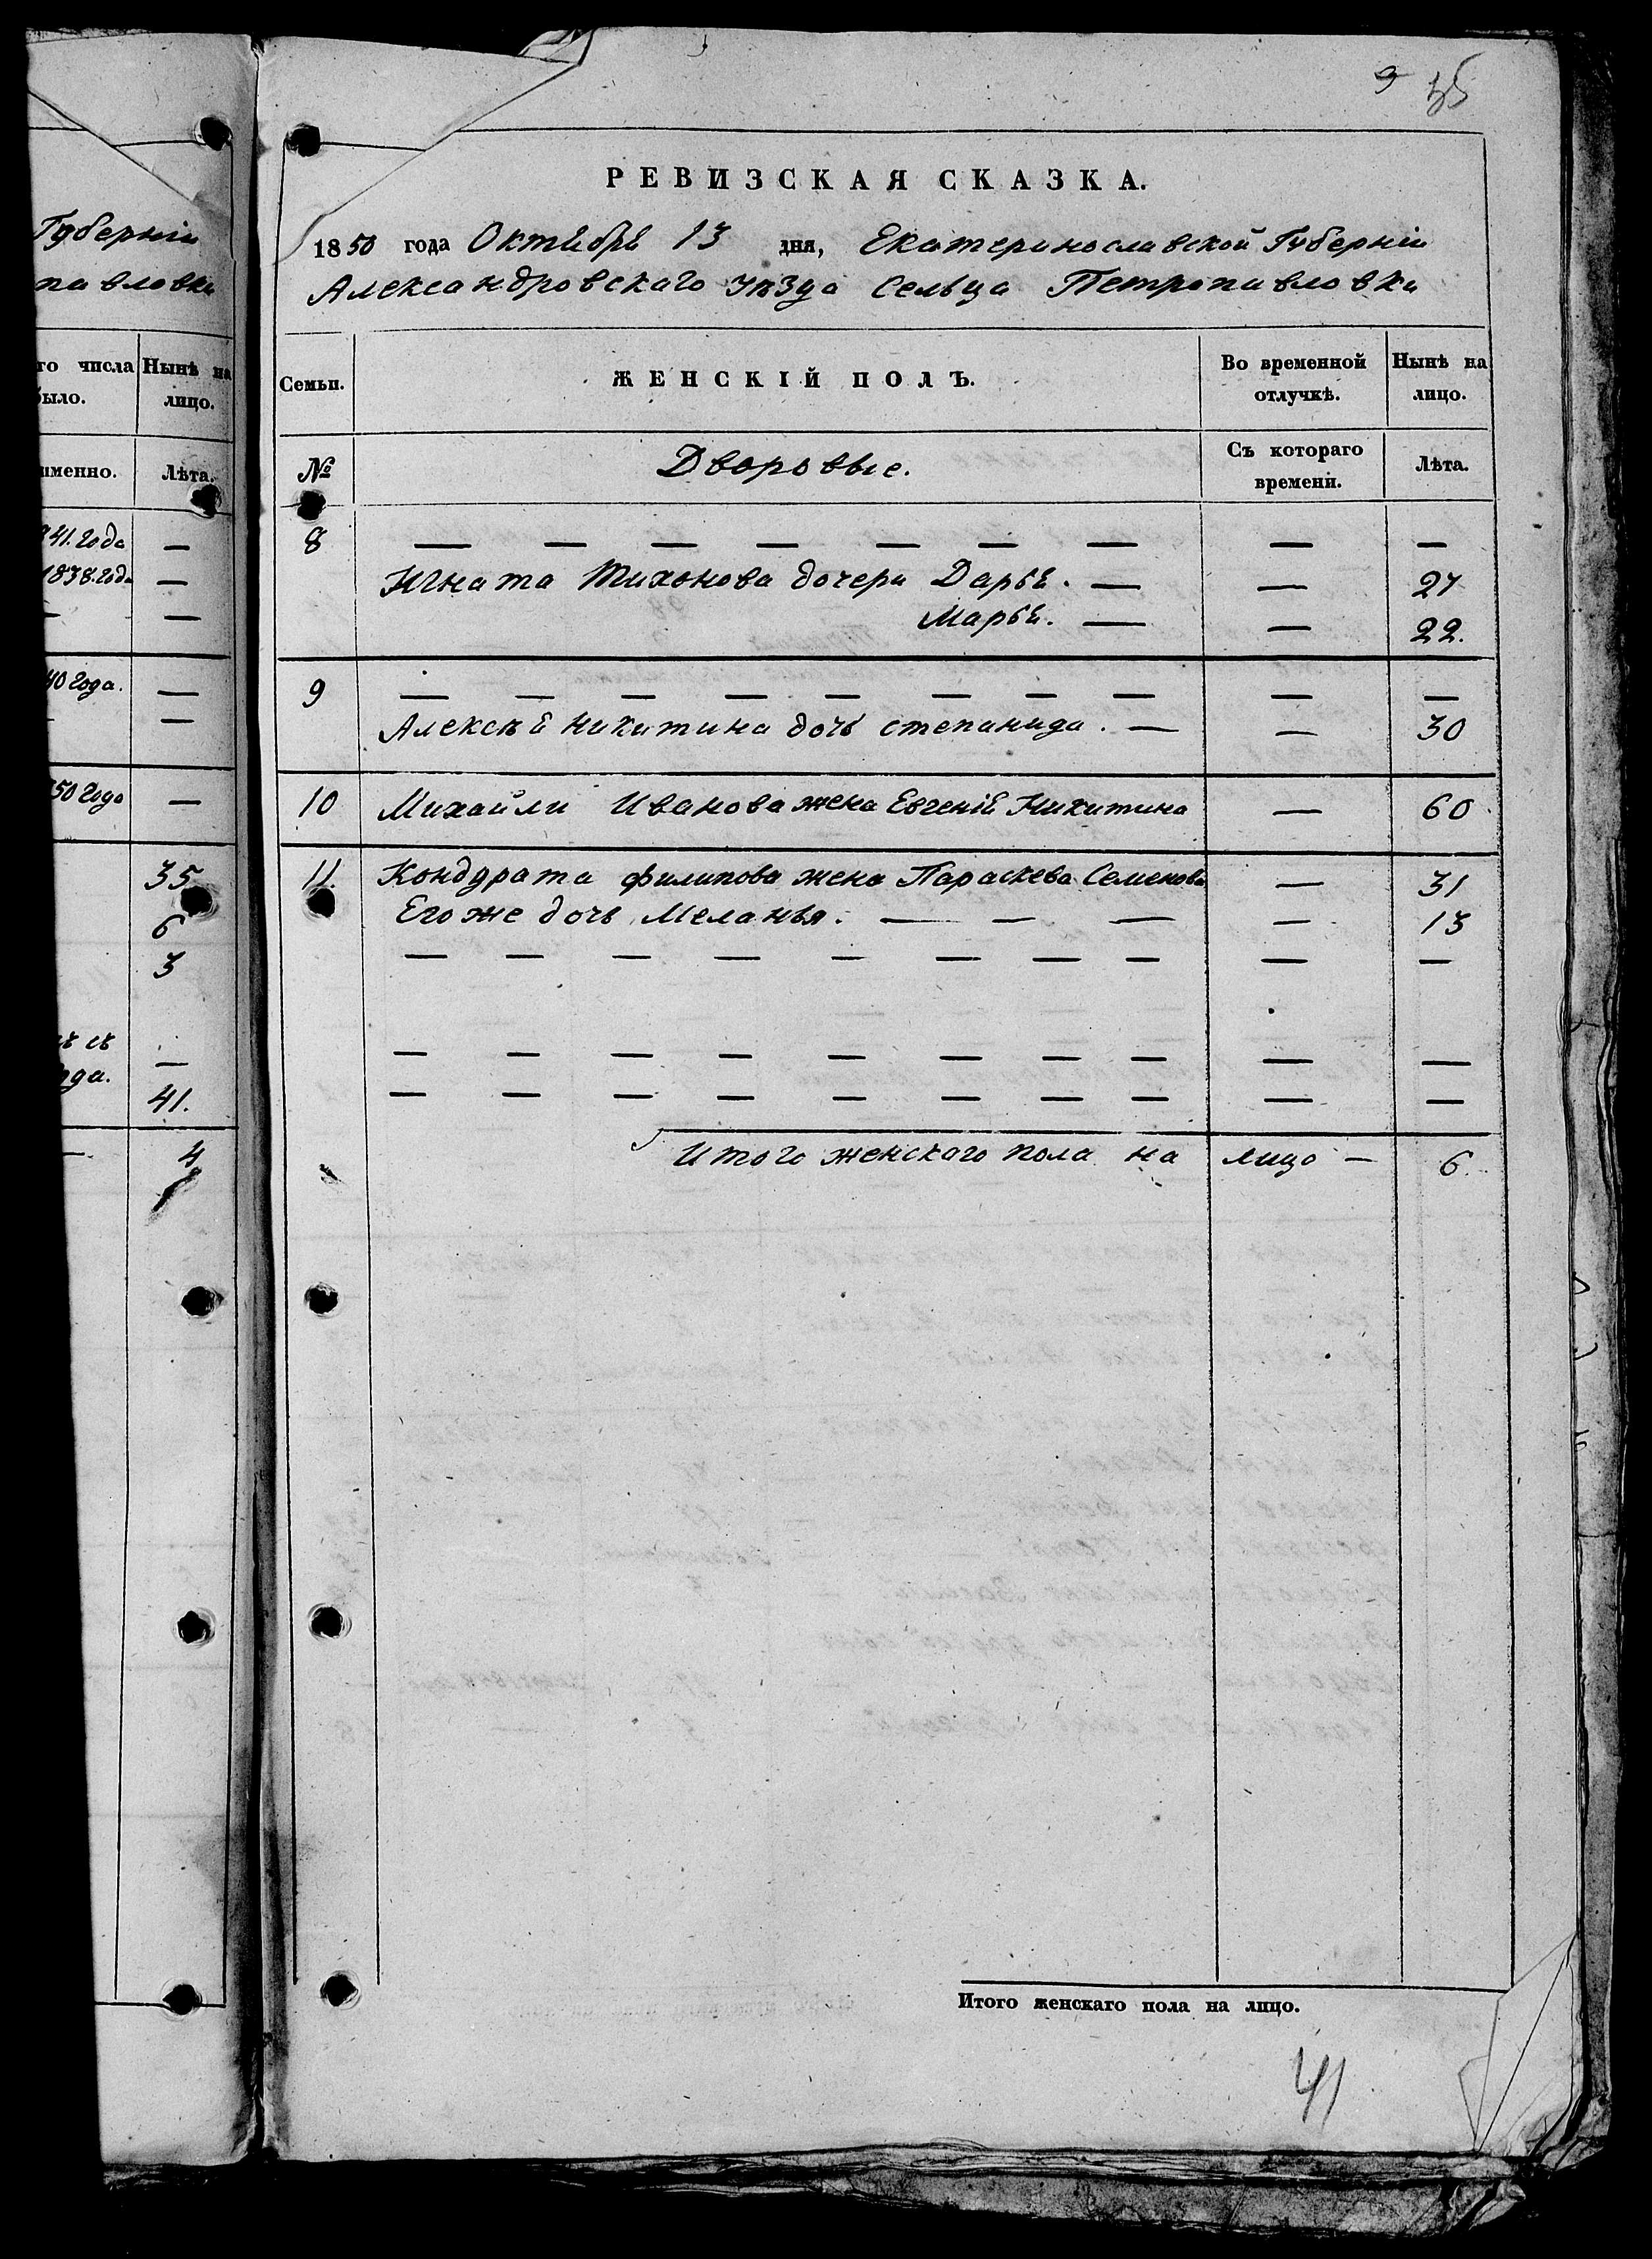 9 35
Губерніи
павловки
го числа Нынѣ на
было. лицо.
именно. Лѣта.
841. года —
1838. года —
— —
40 года. —
— —
850 года —
35
6
3
ъ съ
ода. —
41.
— 4
РЕВИЗСКАЯ СКАЗКА.
1850 года Октября 13 дня, Екатеринославской Губерніи
Александровскаго уѣзда Сельца Петропавловки
Семьи. ЖЕНСКІЙ ПОЛЪ. Во временной отлучкѣ. Нынѣ на лицо.
№ Дворовые. Съ котораго времени. Лѣта.
8 — — — — — — — — —
Игната Тихонова дочери Дарья. — — 27
Марья. — — 22.
9 — — — — — — — — — —
Алексѣя Никитина дочь степанида. — — 30
10 Михайли Иванова жена Евгенія Никитина — 60
11. Кондрата Филипова жена Параскева Семенова — 31
Его же дочь Меланья. — — — — 13
— — — — — — — — — —
— — — — — — — — — —
— — — — — — — — — —
Итого женскаго пола на лицо — 6.
Итого женскаго пола на лицо.
41